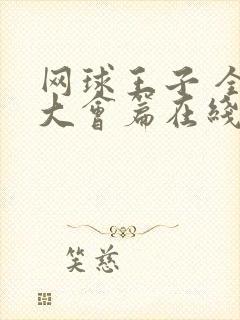 网球王子全
大会篇在线
笑慈